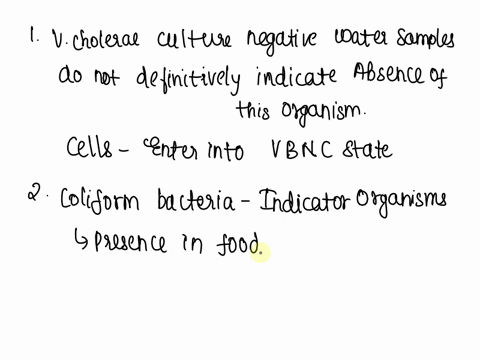 1. V. cholerae culture negative water samples
do not definitively indicate Absence of
this organism.
Cells - Enter into VBNC state
2. Coliform bacteria - Indicator Organisms
↳ Presence in food.